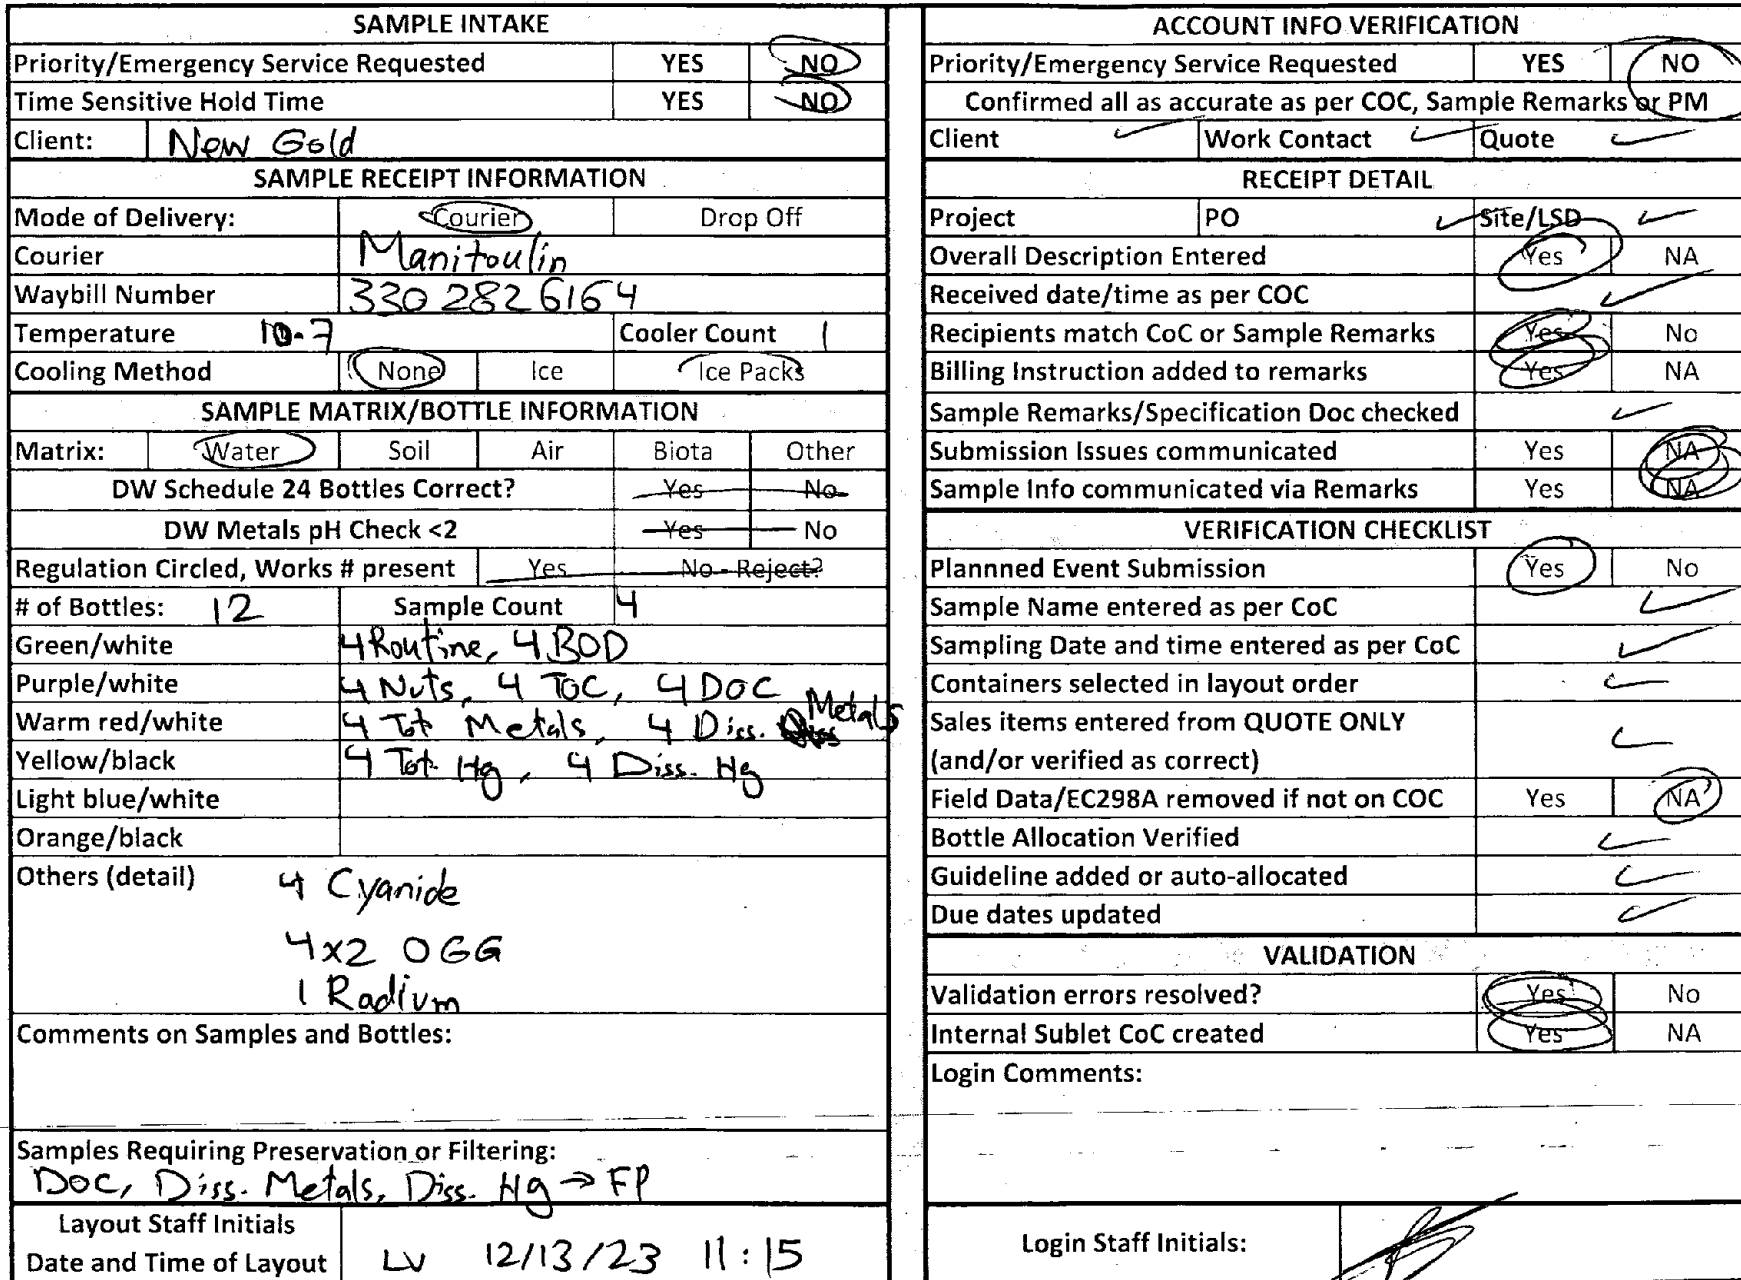 SAMPLE INTAKE
Priority/Emergency Service Requested YES NO
Time Sensitive Hold Time YES NO
Client: New Gold
SAMPLE RECEIPT INFORMATION
Mode of Delivery: Courier Drop Off
Courier Manitoulin
Waybill Number 330 282 6164
Temperature 10.7 Cooler Count 1
Cooling Method None Ice Ice Packs
SAMPLE MATRIX/BOTTLE INFORMATION
Matrix: Water Soil Air Biota Other
DW Schedule 24 Bottles Correct? Yes No
DW Metals pH Check <2 Yes No
Regulation Circled, Works # present Yes No - Reject?
# of Bottles: 12 Sample Count 4
Green/white 4 Routine, 4 BOD
Purple/white 4 Nuts, 4 TOC, 4 DOC
Warm red/white 4 Tot Metals, 4 Diss. Metals
Yellow/black 4 Tot. Hg, 4 Diss. Hg
Light blue/white
Orange/black
Others (detail) 4 Cyanide
4x2 OGG
1 Radium
Comments on Samples and Bottles:
Samples Requiring Preservation or Filtering:
DOC, Diss. Metals, Diss. Hg → FP
Layout Staff Initials
Date and Time of Layout LV 12/13/23 11:15
ACCOUNT INFO VERIFICATION
Priority/Emergency Service Requested YES NO
Confirmed all as accurate as per COC, Sample Remarks or PM
Client ✓ Work Contact ✓ Quote ✓
RECEIPT DETAIL
Project PO ✓ Site/LSD ✓
Overall Description Entered Yes NA
Received date/time as per COC ✓
Recipients match CoC or Sample Remarks Yes No
Billing Instruction added to remarks Yes NA
Sample Remarks/Specification Doc checked ✓
Submission Issues communicated Yes NA
Sample Info communicated via Remarks Yes NA
VERIFICATION CHECKLIST
Plannned Event Submission Yes No
Sample Name entered as per CoC ✓
Sampling Date and time entered as per CoC ✓
Containers selected in layout order ✓
Sales items entered from QUOTE ONLY ✓
(and/or verified as correct)
Field Data/EC298A removed if not on COC Yes NA
Bottle Allocation Verified ✓
Guideline added or auto-allocated ✓
Due dates updated ✓
VALIDATION
Validation errors resolved? Yes No
Internal Sublet CoC created Yes NA
Login Comments:
Login Staff Initials: